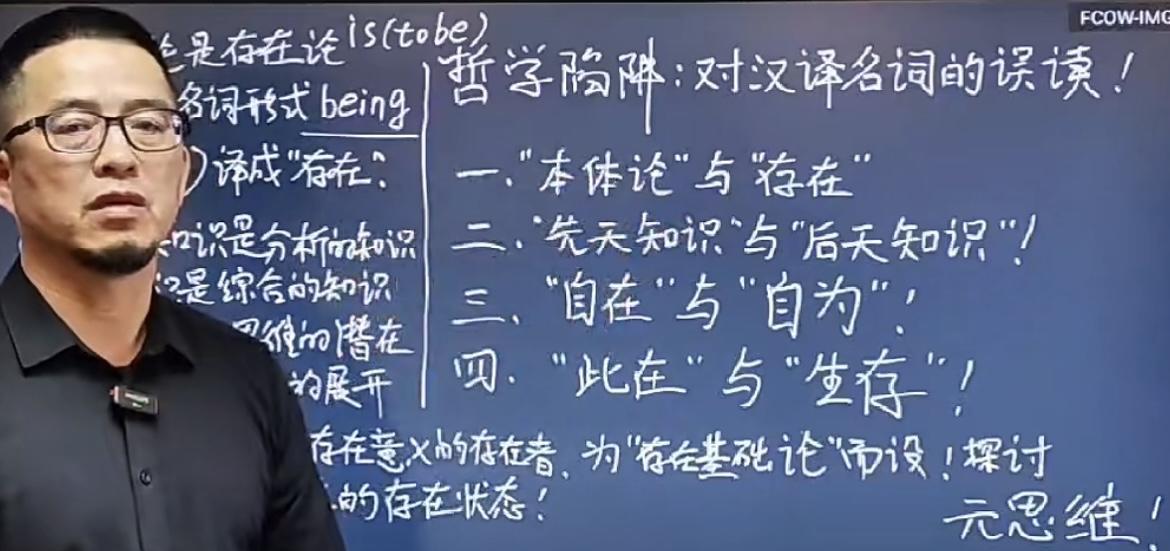 FCOW-IMG
是存在论 is(tobe)
名词形式 being
)译成"存在"?
知识是分析的知识
是综合的知识
思维的潜在
的展开
哲学陷阱:对汉译名词的误读!
一."本体论"与"存在"
二."先天知识"与"后天知识"!
三、"自在"与"自为"!
四."此在"与"生存"!
存在意义的存在者,为"存在基础论"而设!探讨
的存在状态!
元思维!